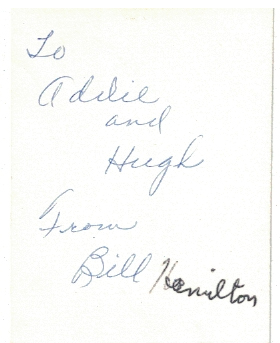 To
Addie
and
Hugh
From
Bill Hamilton